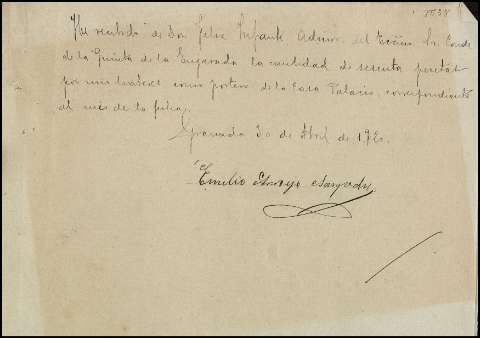 1038
He recibido de Don Felix Infante Admor. del Excmo Sr. Conde
de la Quinta de la Enjarada la cantidad de sesenta pesetas
por mis haberes como portero de la Casa Palacio, correspondiente
al mes de la fecha.
Granada 30 de Abril de
Emilio Arroyo